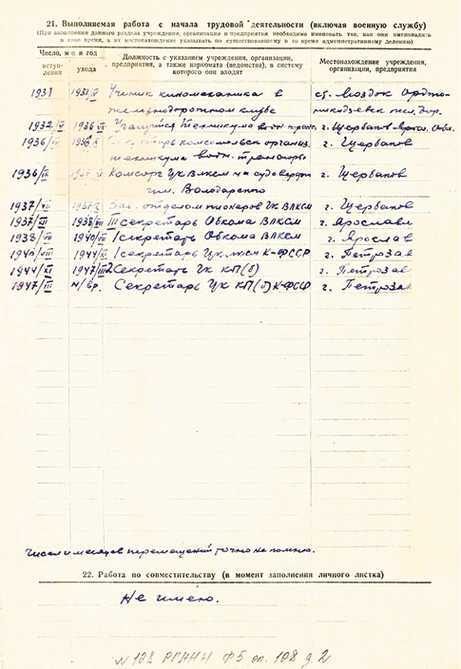 21. Выполняемая работа с начала трудовой деятельности (включая военную службу)
(При заполнении данного раздела учреждения, организации и предприятия необходимо именовать так, как они назывались
в свое время, а их местонахождение указывать по существовавшему в то время административному делению)
Число, м-ц и год
вступления ухода
Должность с указанием учреждения, организации, предприятия, а также наркомата (ведомства), в систему которого они входят
Местонахождение учреждения, организации, предприятия
1931 Ученик киномеханика в ст. Моздок Орджо-
железнодорожном клубе никидзевск жел. дор.
1932/IX 1936 VI Учащийся техникума водн г. Щербаков
1936/VI комсомольск организ. г. Щербаков
техникума водн. транспорта
1936/ Комсорг ЦК ВЛКСМ на судоверфи г. Щербаков
им. Володарского
1937/ Зав. отделом пионеров ГК ВЛКСМ г. Щербаков
1937/ 1938/ секретарь Обкома ВЛКСМ г. Ярославл
1938/ 1940/ I секретарь Обкома ВЛКСМ г. Ярослав
1940/ 1944/ I секретарь ЦК К-ФССР г. Петрозав
1944/ 1947/ 2 Секретарь ГК КП(б) г. Петрозав
1947/ н/вр. Секретарь ЦК КП(б) К-ФССР г. Петрозав
Чисел и месяцев перемещений точно не помню.
22. Работа по совместительству (в момент заполнения личного листка)
Не имею.
N 108 РГАНИ Ф5 оп. 108 д 2